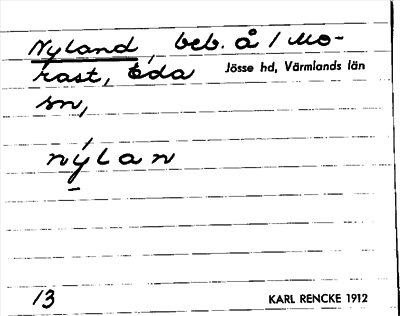 Nyland, beb. å / Mo-
rast, Eda Jösse hd, Värmlands län
sn,
nýlan
13 KARL RENCKE 1912